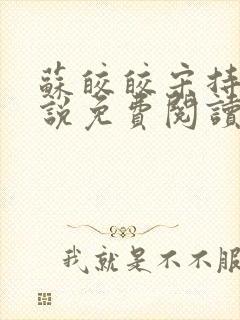 蘇皎皎宋持
說免費閱讀
我就是不不服